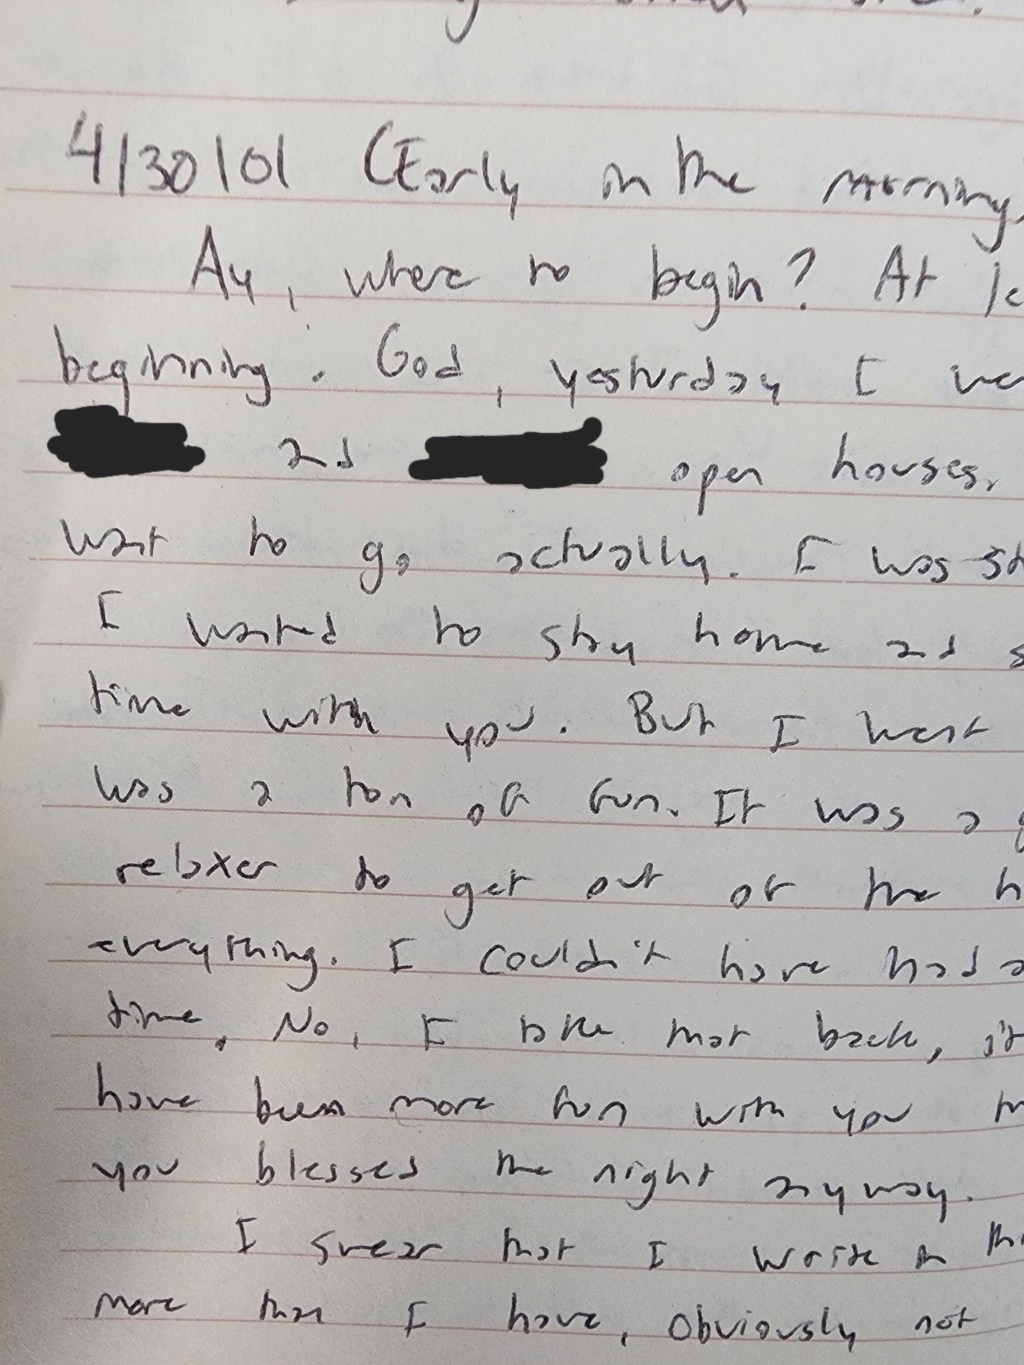 4/30/01 (Early in the morning,
Ay, where to begin? At le
beginning. God, yesturday I we
and open houses.
want to go actually. I was st
I wanted to stay home and s
time with you. But I went
was a ton of fun. It was a g
relaxer to get out of the h
everything. I couldn't have had a
time. No, I take that back, it
have been more fun with you th
you blessed the night anyway.
I swear that I write in thi
more than I have, obviously not